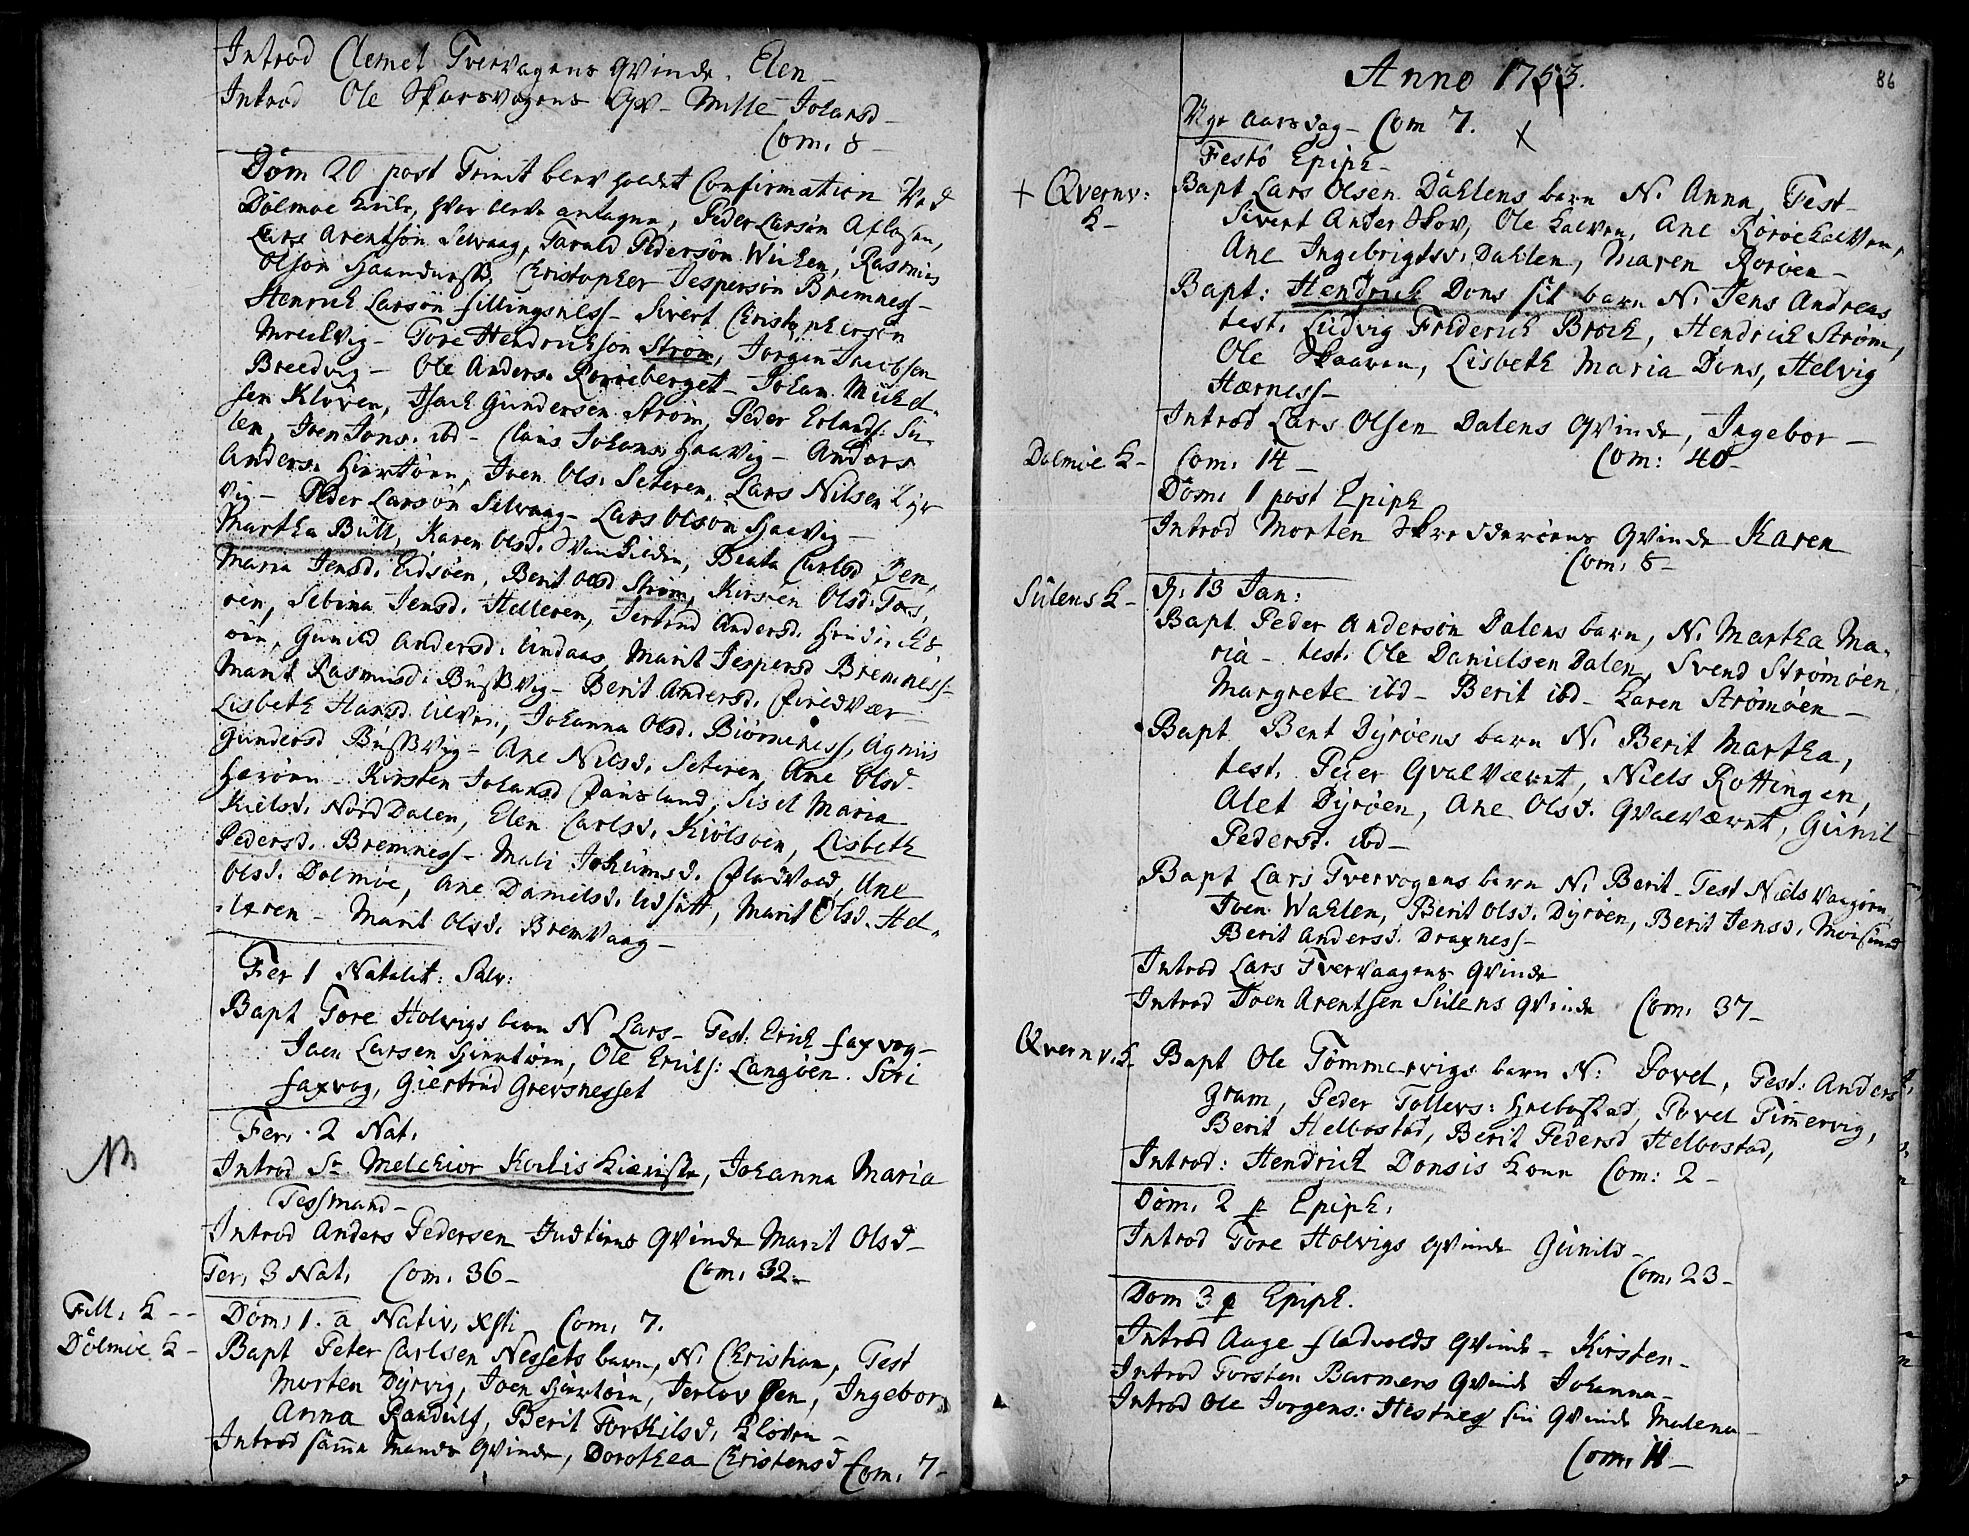 Introd Clemet Tvervagens Qvinde. Elen -
Introd Ole Skarsvogens Qv - Mille Johansd -
Com. 8 -
Dom 20 post Trinit blev holdet Confirmation Ved
Dolmøe Kirke, hvor bleve antagne, Peder Larsøn
Lars Arentsøn Selvaag, Tarald Pedersøn Wichen, Rasmus
Olsøn Christopher Jespersøn Bremness -
Henrich Larsøn fillingsness - Sivert Christophersøn
- Tore Hendrichson Strøm, Jorgen Jacobsen
Breedvig - Ole Anders. Rorøeberget - Johan Michel-
sen Kløven, Isach Gundersen Strøm, Peder Erlands: Su-
len, Joen Jons. ibd - Claus Johans. Haavig - Anders
Anders. Hiertøen, Joen Ols. Seteren, Lars Nilsen
vig - Peder Larsøn Selvaag - Lars Olsøn Haavig -
Martha Bull, Karen Olsd. Beata Carlsd Øen,
Maria Jensd. Eidsøen, Berit Olsd Strøm, Kirsten Olsd.
øen, Sebina Jensd. Helleren, Jertrud Andersd.
øen, Gunild Andersd. Undaas, Marit Jespersd Bremness -
Marit Rasmusd. Bussvig - Berit Andersd.
Lisbeth Hansd. Johanna Olsd. Biørneness, Agnis
Gundersd Bussvig - Ane Nilsd. Seteren, Ane Olsd.
Herøen - Kirsten Johansd Sisel Maria
Kielsd. Nord Dalen, Elen Carlsd. Kiølsøen, Lisbeth
Pedersd. Bremness - Mali Jochumsd. Fladvold, Ane
Olsd. Dolmøe, Ane Danielsd. Udsætt, Marit Olsd. Hel-
leren - Marit Olsd. Bremvaag -
Fer 1 Natalit: Salv:
Bapt Tore Holvigs barn N Lars - Test. Erich faxvog -
Joen Larsen Hiertøen, Ole Erichs: Langøen. Siri
faxvog, Giertrud Grevsnesset
Fer. 2 Nat.
NB
Introd Sr Melchior Johanna Maria
Tessmand -
Introd Anders Pedersen Qvinde Marit Olsd -
Fer. 3 Nat. Com. 36 - Com. 32 -
Fill. K - -
Dom. 1. a Nativ. Xsti Com. 7.
Dolmøe K -
Bapt Peter Carlsen Nessets barn, N. Christian, Test
Morten Dyrvig, Joen Hiertøen, Øen, Ingebor
Anna Randulf, Berit Torkilsd. Kløven -
Introd samme Mands Qvinde, Dorothea Christensd Com. 7 -
86
Anno 1753.
Nyt aarsdag - Com 7.
Festo Epiph -
+ Qvernv: K -
Bapt Lars Olsen Dahlens barn N. Anna, Test -
Sivert Ander Skov, Ole Kalven, Ane Rorøe Kalven,
Ane Ingebrigtsd. Dahlen, Maren Rorøen -
Bapt: Hendrich Dons sit barn N. Jens Andreas
test. Ludvig Friderich Broch, Hendrich Strøm,
Ole Skaaven, Lisbeth Maria Dons, Helvig
Hærness -
Introd Lars Olsen Dalens Qvinde, Ingebor -
Dolmøe K - Com. 14 - Com: 40 -
Dom. 1 post Epiph
Introd Morten Skredderøens Qvinde Karen
Com. 8 -
Sulens K - d. 13 Jan:
Bapt Peder Andersøn Dalens barn, N. Martha Ma-
ria - test. Ole Danielsen Dalen, Svend Strømøen
Margrete ibd - Berit ibd - Karen Strømøen -
Bapt Bent Dyrøens barn N. Berit Martha,
test. Peder Qvalværet, Niels Rottingen,
Alet Dyrøen, Ane Olsd. Qvalværet, Gunil
Pedersd. ibd -
Bapt Lars Tvervogens barn N. Berit - Test Niels Vaagøen,
Joen Wahlen, Berit Olsd. Dyrøen, Berit Jensd. Moesund
Berit Andersd. Draxness -
Introd Lars Tvervaagens Qvinde
Introd Joen Arentsen Sulens Qvinde Com. 37 -
Qvernv. K.
Bapt Ole Tømmervigs barn N: Povel, Test: Anders
Gram, Peder Tollevs: Helbostad, Povel Timmervig,
Berit Helbostad, Berit Pedersd Helbostad,
Introd: Hendrich Donsis kone Com: 2 -
Dom. 2 p Epiph.
Introd Tore Holvigs Qvinde Gunild -
Com. 23 -
Dom 3 p Epiph.
Introd Aage fladvolds Qvinde - Kirsten -
Introd Torsten Barmens Qvinde Johanna -
Introd Ole Jorgens: Hestnes sin Qvinde Malena -
Com. 11 -